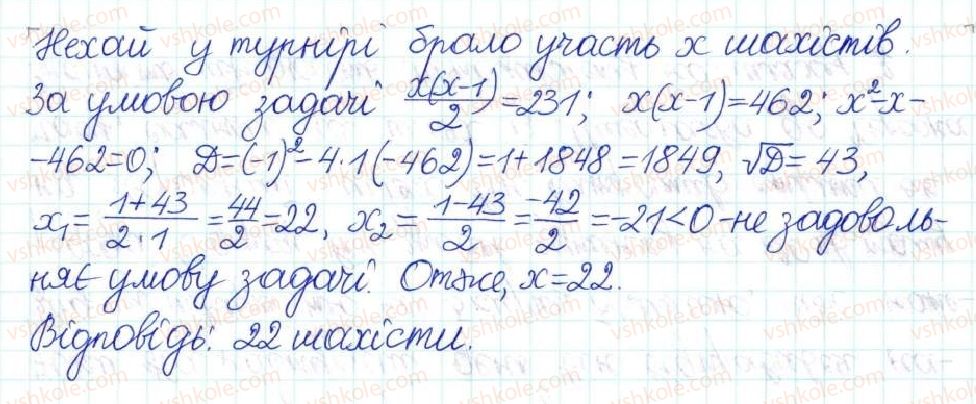 Нехай у турнірі брало участь x шахістів.
За умовою задачі x(x-1)/2 = 231; x(x-1)=462; x²-x-
-462=0; D=(-1)²-4·1(-462)=1+1848=1849, √D=43,
x₁= (1+43)/(2·1) = 44/2 =22, x₂= (1-43)/2 = -42/2 =-21<0 -не задоволь-
няє умову задачі. Отже, x=22.
Відповідь: 22 шахісти.